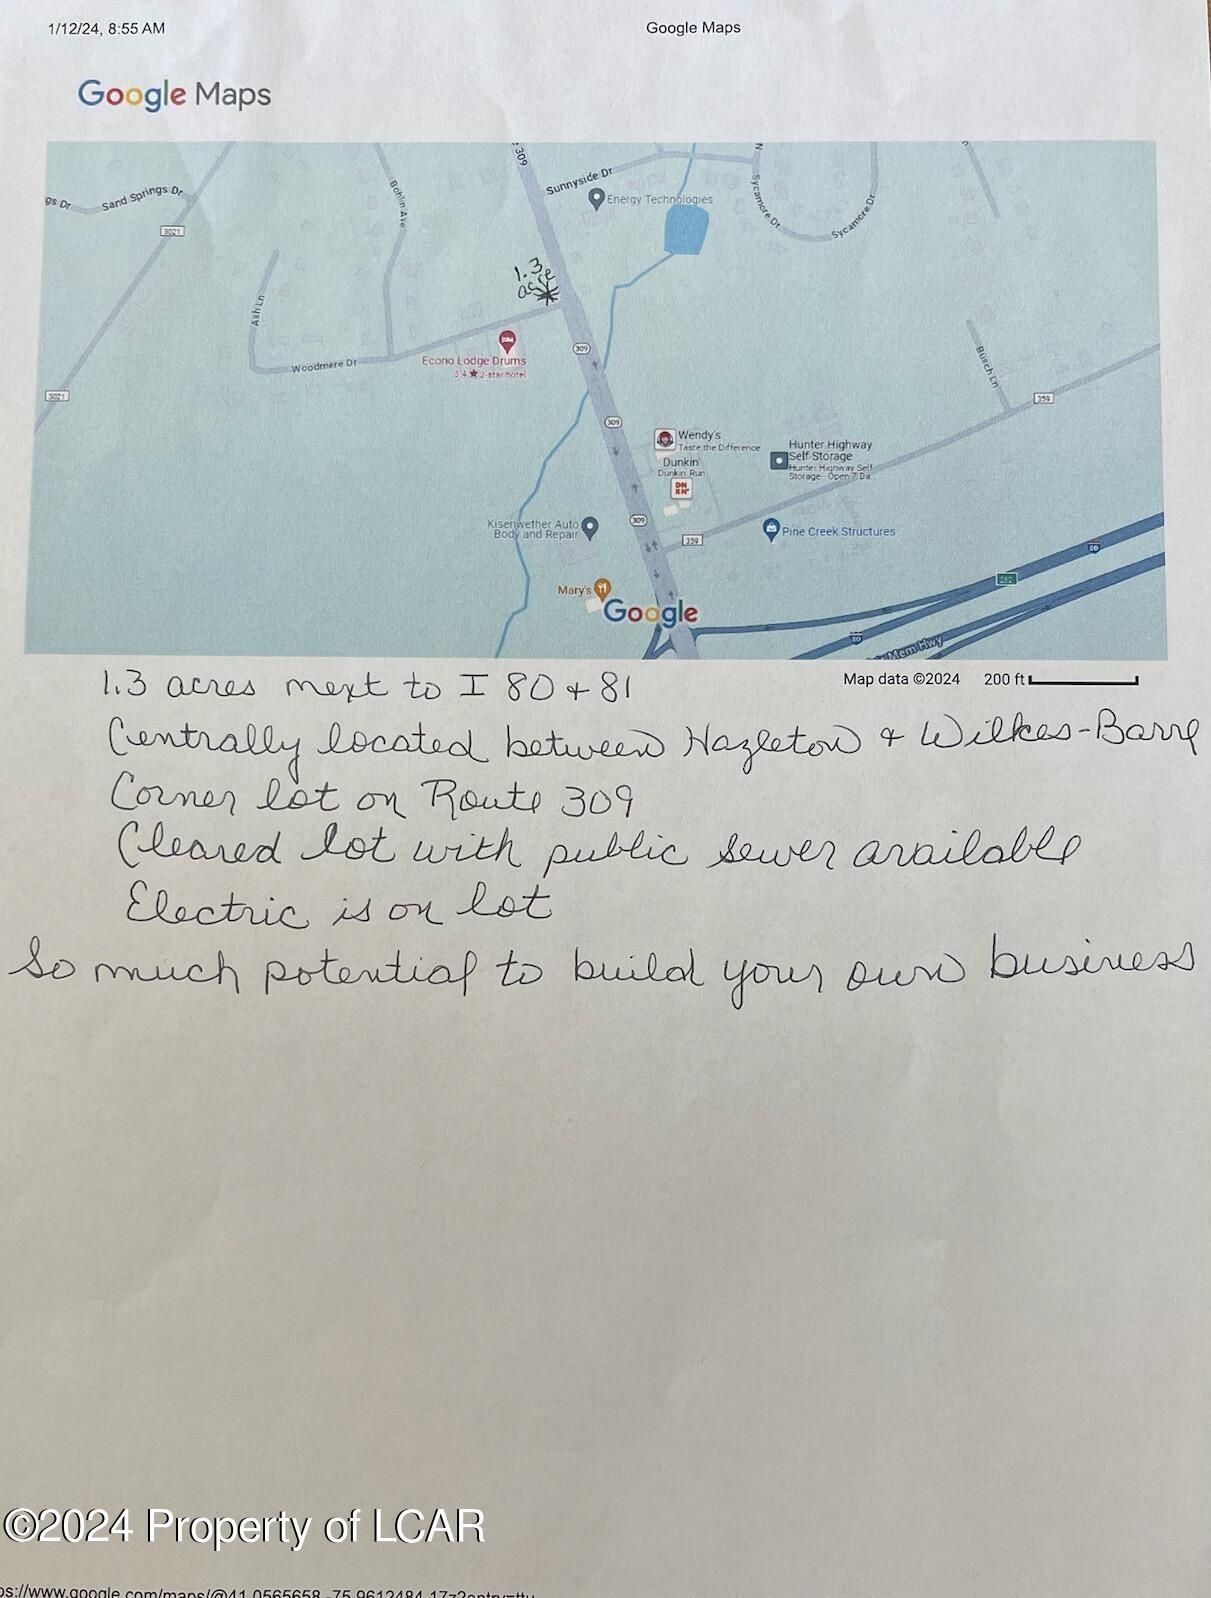 1/12/24, 8:55 AM
Google Maps
Google Maps
309
Sunnyside Dr
gs Dr
Sand Springs Dr
Bohlin Ave
Energy Technologies
Sycamore Dr
Sycamore Dr
3021
1.3
acre
Ash Ln
309
Econo Lodge Drums
3.4 ★ 2-star hotel
Woodmere Dr
Busch Ln
3021
359
309
Wendy's
Taste the Difference
Hunter Highway
Self Storage
Hunter Highway Self
Storage - Open 7 Da...
Dunkin'
Dunkin Run
DN
KN'
Kisenwether Auto
Body and Repair
309
359
Pine Creek Structures
80
262
Mary's
Google
80
Mem Hwy
Map data ©2024 200 ft
1.3 acres next to I 80 + 81
Centrally located between Hazleton & Wilkes-Barre
Corner lot on Route 309
Cleared lot with public sewer available
Electric is on lot
So much potential to build your own business
©2024 Property of LCAR
ps://www.google.com/maps/@41.0565658,-75.9612484,17z?entry=ttu